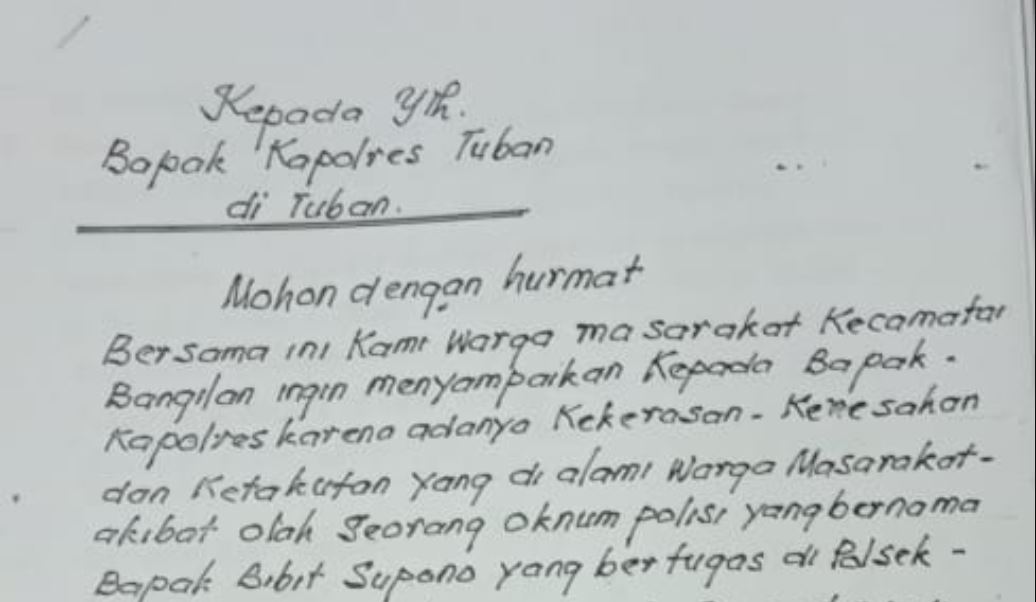 Kepada Yth.
Bapak Kapolres Tuban
di Tuban.
Mohon dengan hurmat
Bersama ini Kami Warga masarakat Kecamatan
Bangilan ingin menyampaikan Kepada Bapak -
Kapolres karena adanya Kekerasan - Keresahan
dan Ketakutan yang di alami Warga Masarakat -
akibat olah Seorang oknum polisi yang bernama
Bapak Bibit Supono yang bertugas di Polsek -